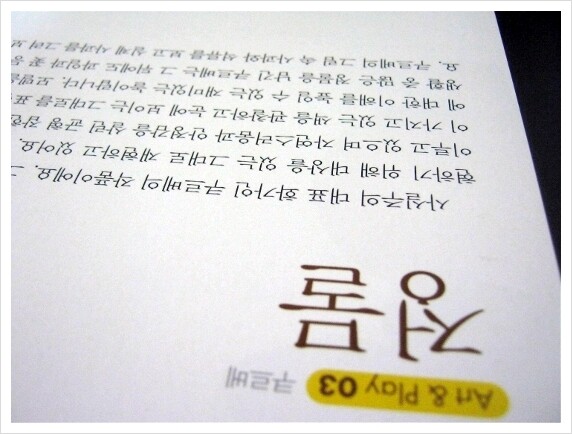 Art & Play 03 쿠르베
정물
사실주의 대표 화가인 쿠르베의 작품이에요.
현하기 위해 대상을 있는 그대로 재현하고 있어요.
이루고 있으며 자연스러움과 안정감을 살린 균형 잡힌
이 가지고 있는 색을 관찰하고 눈에 보이는 그대로를 표
에 대한 이해를 높일 수 있는 재미있는 놀이랍니다.
생활 중 많은 정물을 남긴 쿠르베는 그 뒤에도 과일과 꽃
요. 쿠르베의 그림 속 사과와 석류를 보고 실제 사과를 그려